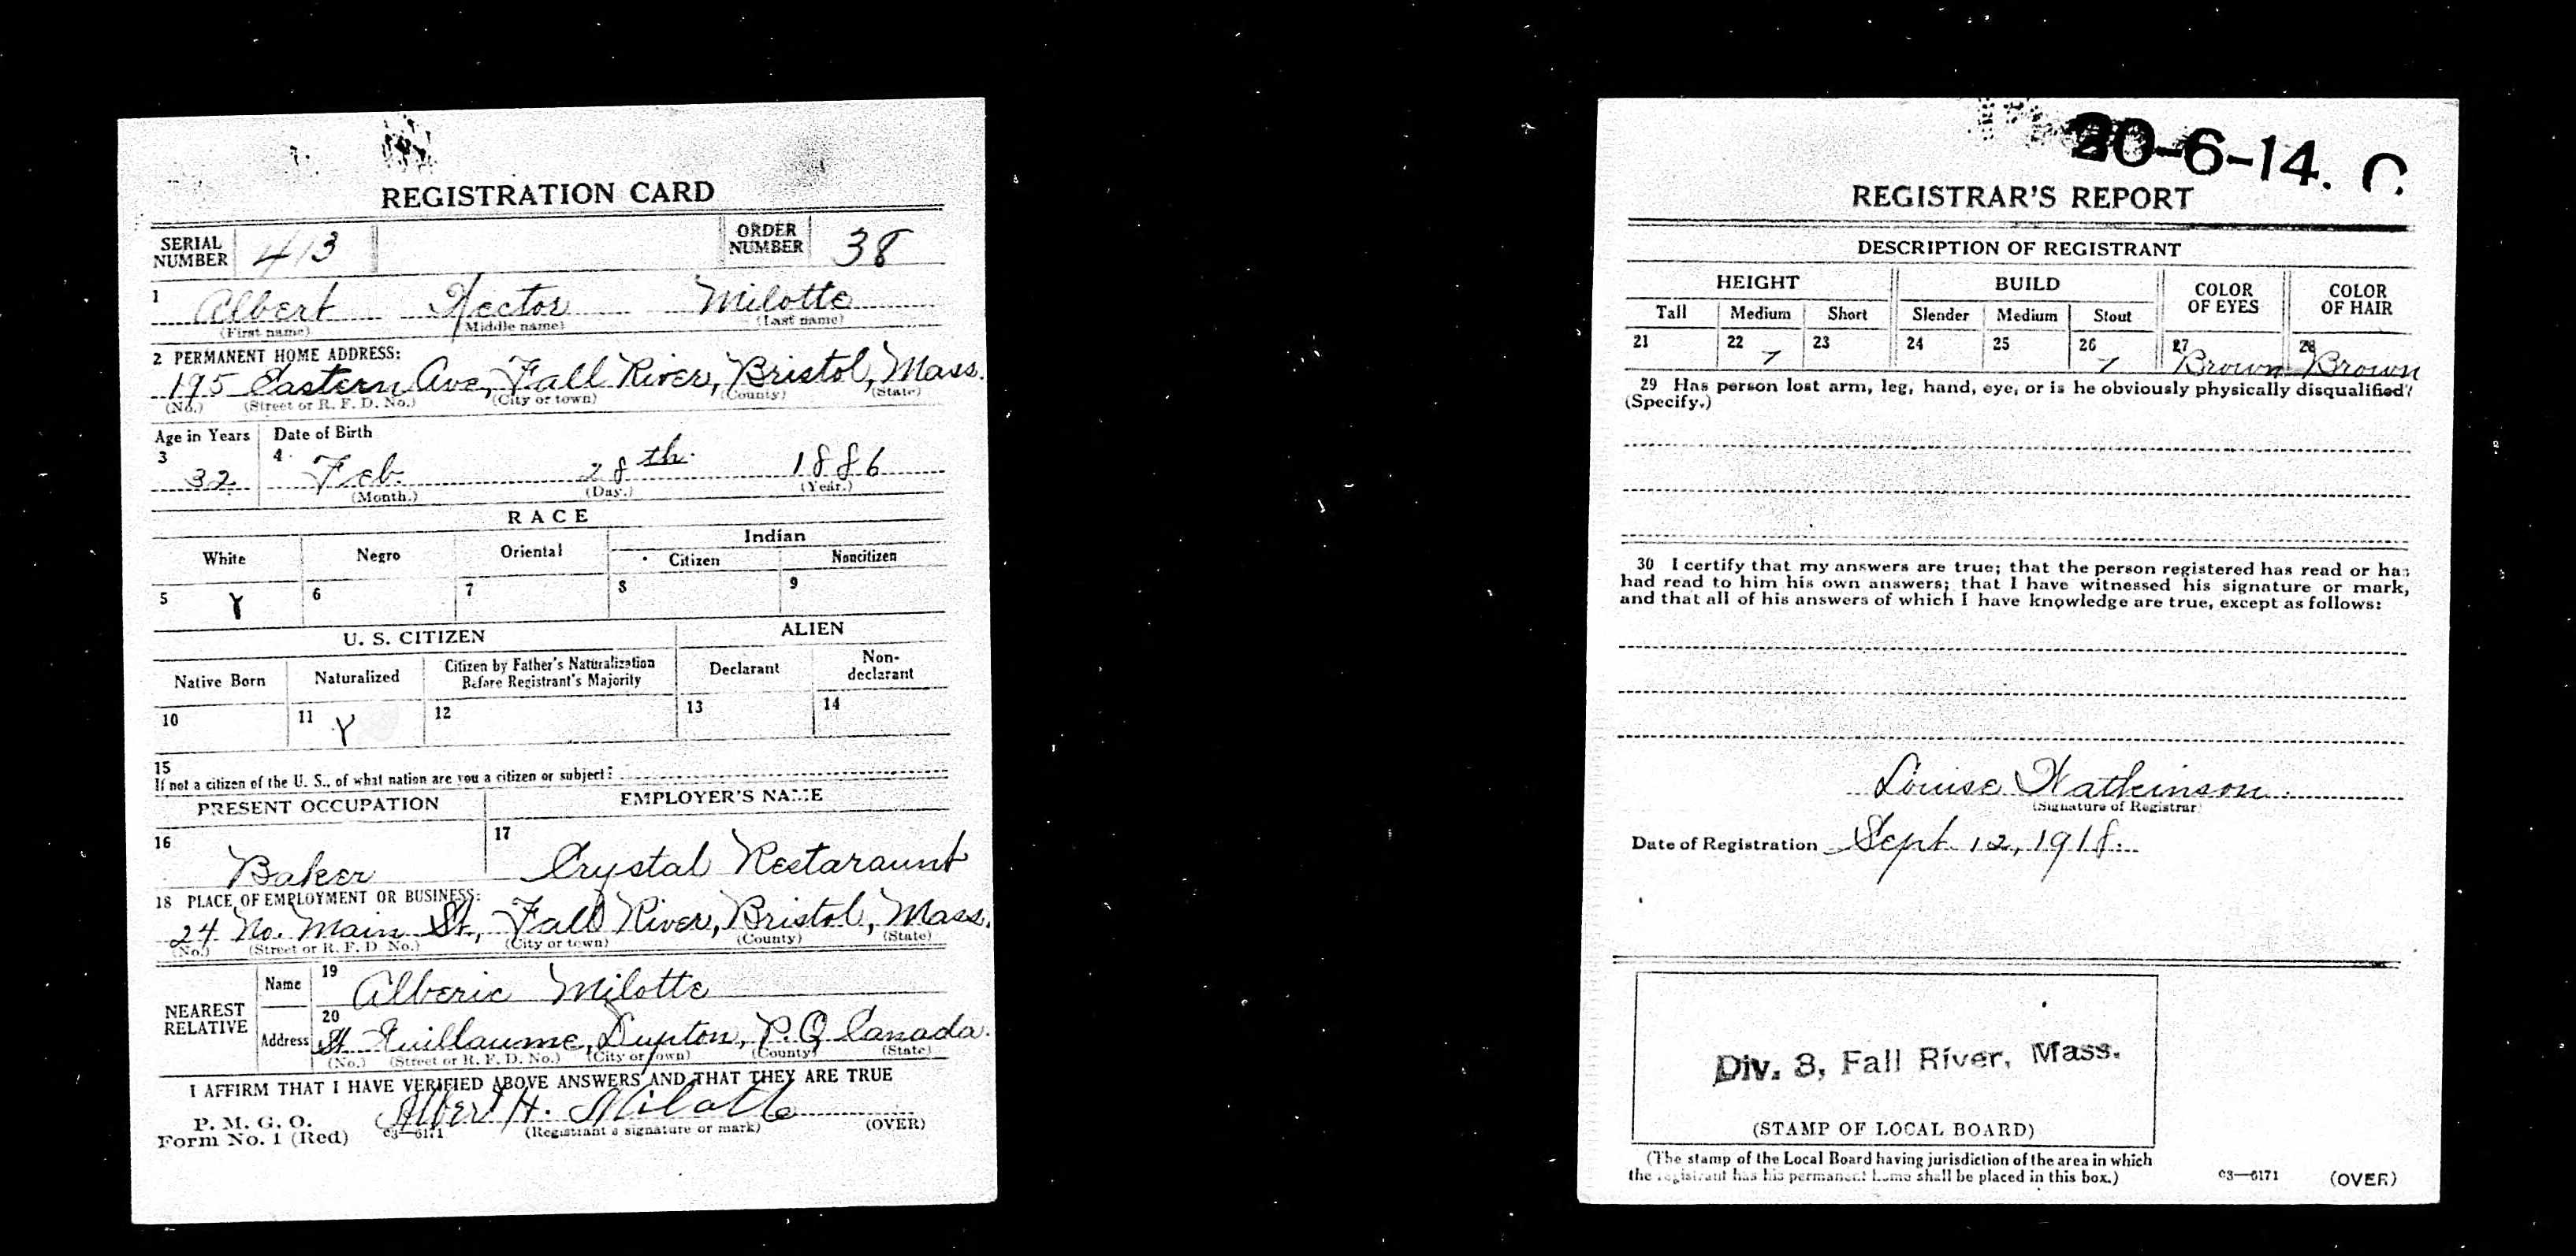 REGISTRATION CARD
SERIAL NUMBER 413 ORDER NUMBER 38
1 Albert Hector Milotte
(First name) (Middle name) (Last name)
2 PERMANENT HOME ADDRESS:
195 Eastern Ave, Fall River, Bristol, Mass.
(No.) (Street or R. F. D. No.) (City or town) (County) (State)
Age in Years Date of Birth
3 32 4 Feb. 28th. 1886
(Month.) (Day.) (Year.)
RACE
White Negro Oriental Indian
Citizen Noncitizen
5 Y 6 7 8 9
U. S. CITIZEN ALIEN
Native Born Naturalized Citizen by Father's Naturalization Before Registrant's Majority Declarant Non-declarant
10 11 Y 12 13 14
15
If not a citizen of the U. S., of what nation are you a citizen or subject?
PRESENT OCCUPATION EMPLOYER'S NAME
16 Baker 17 Crystal Restaraunt
18 PLACE OF EMPLOYMENT OR BUSINESS:
24 No. Main St., Fall River, Bristol, Mass.
(No.) (Street or R. F. D. No.) (City or town) (County) (State)
NEAREST RELATIVE
Name 19 Alberic Milotte
Address 20 St Guillaume, Dupton, P.Q Canada.
(No.) (Street or R. F. D. No.) (City or town) (County) (State)
I AFFIRM THAT I HAVE VERIFIED ABOVE ANSWERS AND THAT THEY ARE TRUE
P. M. G. O.
Form No. 1 (Red) Albert H. Milotte
c3—6171 (Registrant's signature or mark) (OVER)
20-6-14. C
REGISTRAR'S REPORT
DESCRIPTION OF REGISTRANT
HEIGHT BUILD COLOR OF EYES COLOR OF HAIR
Tall Medium Short Slender Medium Stout
21 22 23 24 25 26 27 Brown 28 Brown
29 Has person lost arm, leg, hand, eye, or is he obviously physically disqualified?
(Specify.)
30 I certify that my answers are true; that the person registered has read or has
had read to him his own answers; that I have witnessed his signature or mark,
and that all of his answers of which I have knowledge are true, except as follows:
Louise Watkinson.
(Signature of Registrar)
Date of Registration Sept. 12, 1918.
Div. 3, Fall River, Mass.
(STAMP OF LOCAL BOARD)
(The stamp of the Local Board having jurisdiction of the area in which
the registrant has his permanent home shall be placed in this box.)
c3—6171 (OVER)